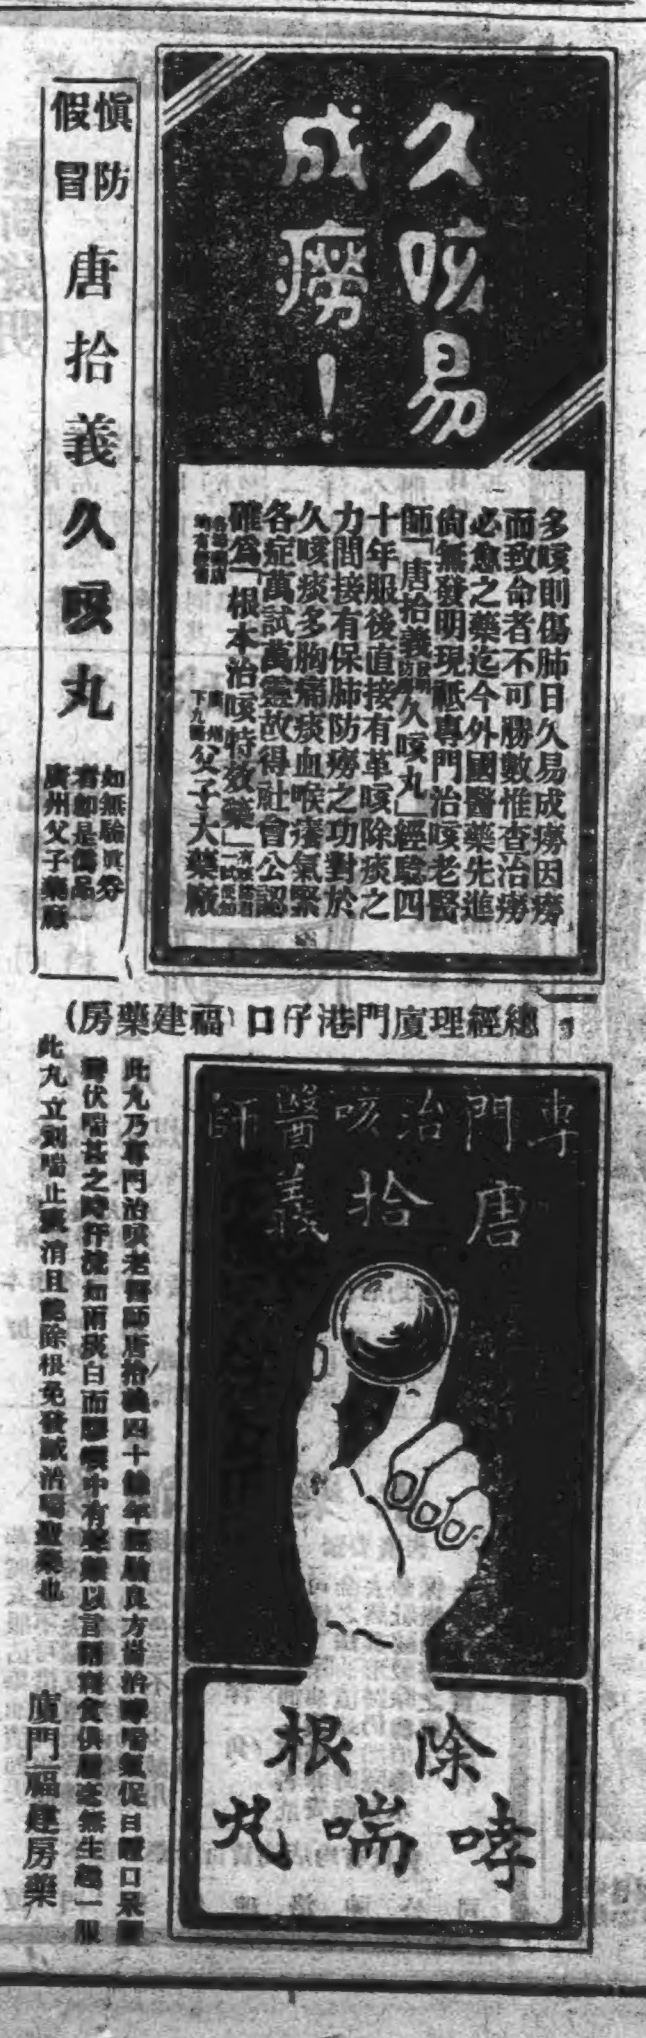 久咳易
成癆！
多咳則傷肺日久易成癆因癆
而致命者不可勝數惟查治癆
必愈之藥迄今外國醫藥先進
尙無發明現祗專門治咳老醫
師「唐拾義久咳丸」經驗四
十年服後直接有革咳除痰之
力間接有保肺防癆之功對於
久咳痰多胸痛痰血喉癢氣緊
各症萬試萬靈故得社會公認
確爲「根本治咳特效藥」
廣州
下九甫
父子大藥廠
愼防
假冒
唐拾義久咳丸
如無驗眞券
者卽是僞品
廣州父子藥廠
總經理廈門港仔口（福建藥房）
專門治咳醫師
唐拾義
除根
哮喘丸
此丸乃專門治咳老醫師唐拾義四十餘年經驗良方耑治哮喘氣促目瞪口呆
伏喘甚之時汗流如雨痰白而膠喉中有聲難以言語寢食俱廢毫無生趣一服
此丸立刻喘止痰消且能除根免發誠治喘聖藥也
廈門福建房藥